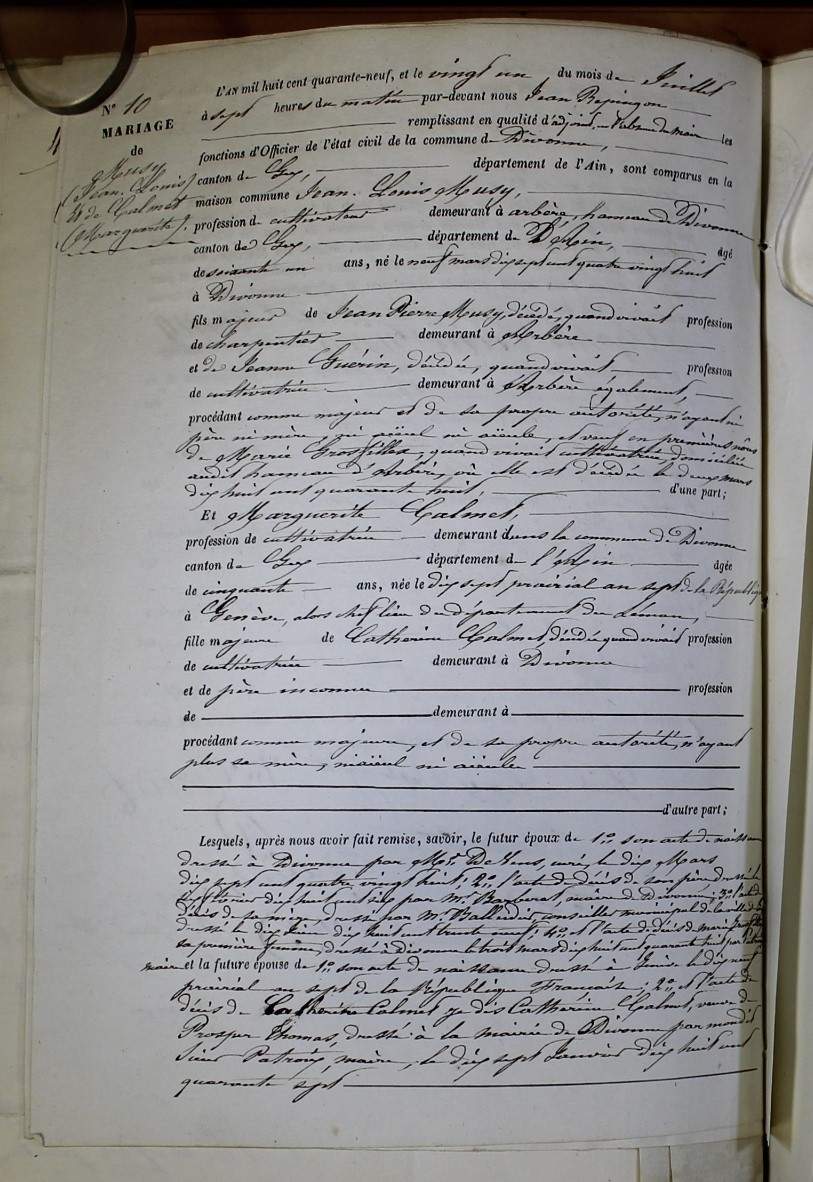 N° 10
MARIAGE
de
Musy
(Jean-Louis)
et de Calmet
(Marguerite).
L'AN mil huit cent quarante-neuf, et le vingt un du mois de Juillet
à sept heures du matin par-devant nous Jean
remplissant en qualité d'adjoint, en l'absence du maire les
fonctions d'Officier de l'état civil de la commune de Divonne,
canton de Gex, département de l'Ain, sont comparus en la
maison commune Jean-Louis Musy,
profession de cultivateur demeurant à arbère, hameau de Divonne
canton de Gex, département de L'Ain, âgé
de soixante un ans, né le neuf mars dix sept cent quatre vingt huit
à Divonne
fils majeur de Jean Pierre Musy, décédé, quand vivait profession
de charpentier demeurant à Arbère
et de Jeanne Guérin, décédée, quand vivait, profession
de cultivatrice demeurant à Arbère également,
procédant comme majeur et de sa propre autorité, n'ayant ni
père ni mère, ni aïeul ni aïeule, et veuf en premières nôces
de Marie Grosfillex, quand vivait cultivatrice domiciliée
audit hameau d'Arbère, où elle est décédée le deux mars
dix huit cent quarante huit, d'une part;
Et Marguerite Calmet,
profession de cultivatrice demeurant dans la commune de Divonne
canton de Gex département de l'Ain âgée
de cinquante ans, née le dix sept prairial an sept de la République
à Genève, alors chef lieu du département du Léman,
fille majeure de Catherine Calmet décédée quand vivait profession
de cultivatrice demeurant à Divonne
et de père inconnu profession
de demeurant à
procédant comme majeure, et de sa propre autorité, n'ayant
plus sa mère, ni aïeul ni aïeule
d'autre part;
Lesquels, après nous avoir fait remise, savoir, le futur époux de 1° son acte de naissance
dressé à Divonne par Mr. De curé, le dix Mars
dix sept cent quatre vingt huit; 2° l'acte de décès de son père dressé le
février dix huit cent six par Mr. Barberat, maire de Divonne; 3° l'acte de
décès de sa mère, dressé par Mr. conseiller municipal de la
dressé le dix huit cent trente neuf; 4° et l'acte de décès de marie
sa première femme, dressé à divonne le trois mars dix huit cent quarante huit par
maire et la future épouse de 1° son acte de naissance dressé à Genève le dix neuf
prairial an sept de la République Française; 2° et l'acte de
décès de Catherine Calmet Catherine Calmet, veuve de
Prosper Thomas, dressé à la mairie de Divonne par mondit
Sieur maire, le dix sept Janvier dix huit cent
quarante sept